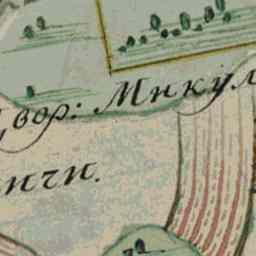 двор: Микул
ичи.